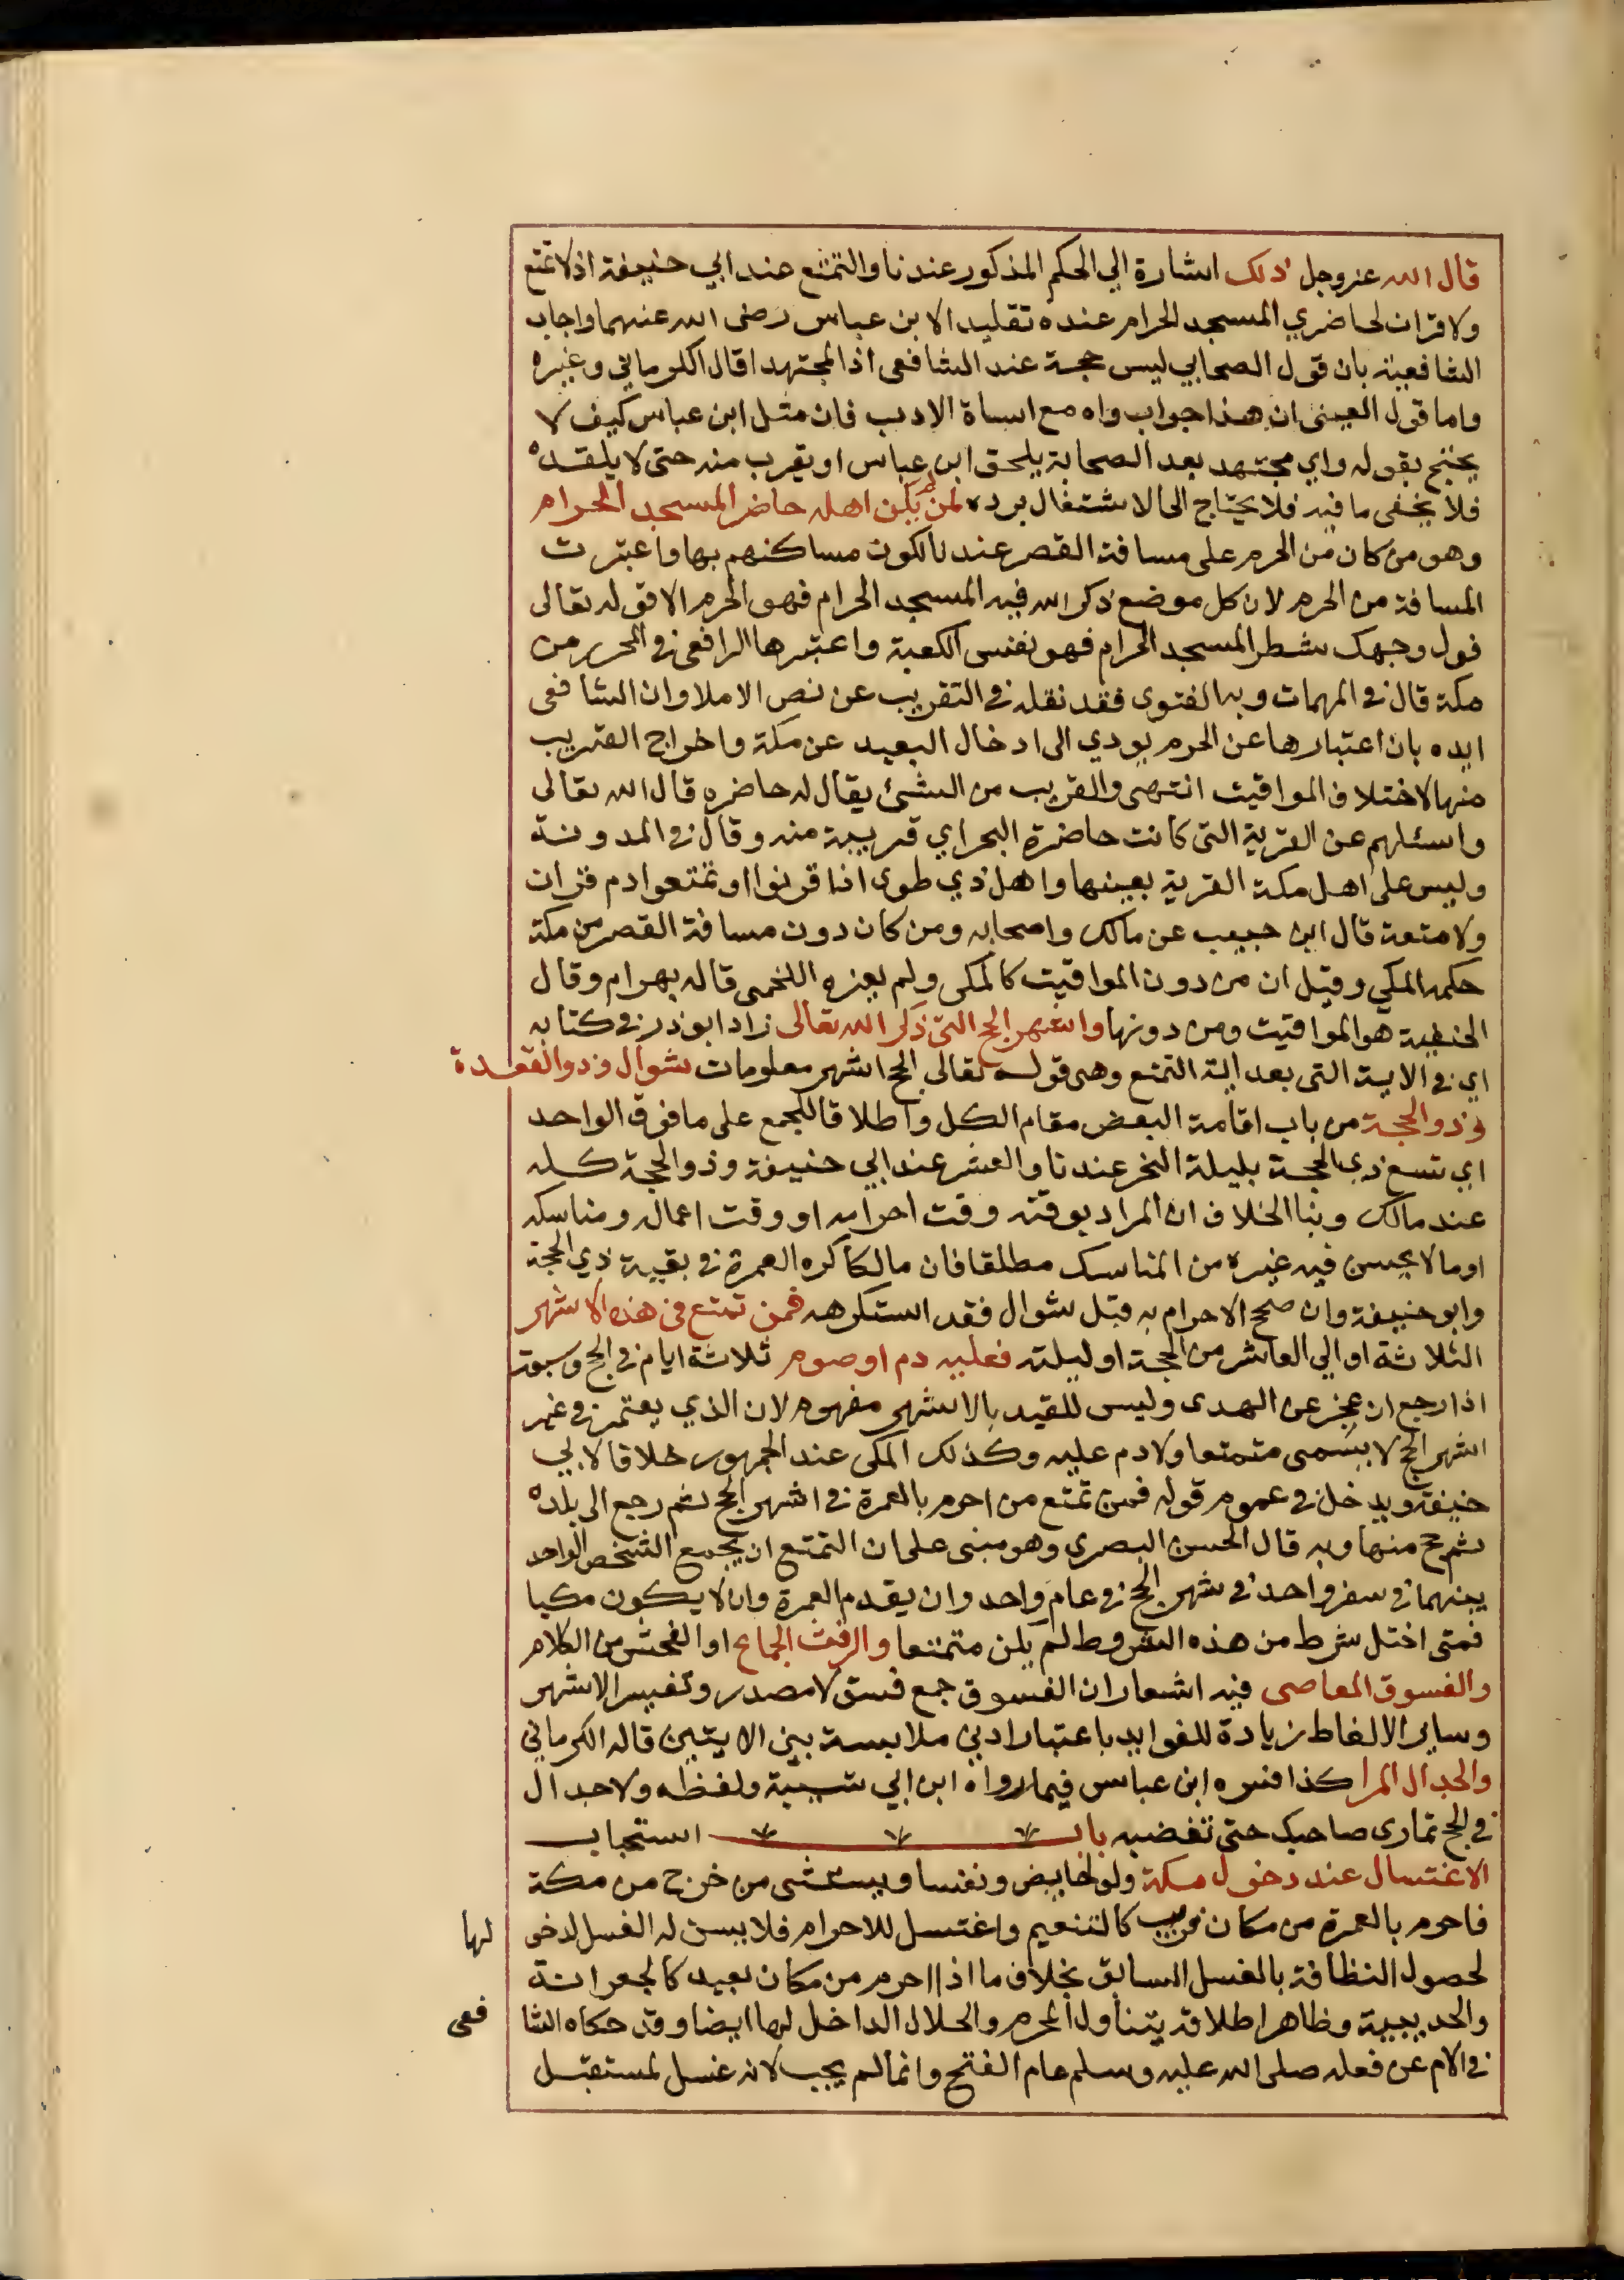 قال الله عزوجل ذلك اشارة الي الحكم المذكور عندنا والتمتع عند ابي حنيفة اذ لا تمتع
ولا قران لحاضري المسجد الحرام عنده تقليد الابن عباس رضى الله عنهما واجاب
الشافعية بان قول الصحابي ليس حجة عند الشافعى اذ المجتهد اقال الكرماني وغيره
واما قول العينى ان هذا جواب واه مع اساة الادب فان مثل ابن عباس كيف لا
يحتج بقوله واي مجتهد بعد الصحابة يلحق ابن عباس او يقرب منه حتى لا يقلده
فلا يخفى ما فيه فلا يحتاج الى الاشتغال برده لمن لم يكن اهله حاضر المسجد الحرام
وهو من كان من الحرم على مسافة القصر عندنا لكون مساكنهم بها واعتبرت
المسافة من الحرم لان كل موضع ذكر الله فيه المسجد الحرام فهو الحرم الا قوله تعالى
فول وجهك شطر المسجد الحرام فهو نفس الكعبة واعتبرها الرافعى في المحرر من
مكة قال في المهمات وبه الفتوى فقد نقله في التقريب عن نص الاملا وان الشافعى
ايده بان اعتبارها عن الحرم يودي الى ادخال البعيد عن مكة واخراج القريب
منها لاختلاف المواقيت انتهى والقريب من الشئ يقال له حاضره قال الله تعالى
واسئلهم عن القرية التى كانت حاضرة البحر اي قريبة منه وقال في المدونة
وليس على اهل مكة القرية بعينها واهل ذي طوى اذا قرنوا او تمتعوا دم قران
ولا متعة قال ابن حبيب عن مالك واصحابه ومن كان دون مسافة القصر من مكة
حكمه المكي وقيل ان من دون المواقيت كالمكى ولم يعزه اللخمى قاله بهرام وقال
الحنفية هو المواقيت ومن دونها واشهر الحج التى ذكر الله تعالى زاد ابوذر في كتابه
اي في الاية التى بعد اية التمتع وهى قوله تعالى الحج اشهر معلومات شوال وذو القعدة
وذو الحجة من باب اقامة البعض مقام الكل واطلاقا للجمع على ما فوق الواحد
اي تسع ذي الحجة بليلة النحر عندنا والعشر عند ابي حنيفة وذو الحجة كله
عند مالك وبنا الخلاف ان المراد بوقته وقت احرامه او وقت اعماله ومناسكه
او ما لا يحسن فيه غيره من المناسك مطلقا فان مالكا كره العمرة في بقية ذي الحجة
وابو حنيفة وان صحح الاحرام به قبل شوال فقد استكرهه فمن تمتع في هذه الاشهر
الثلاثة او الي العاشر من الحجة او ليلته فعليه دم او صوم ثلاثة ايام في الحج وسبعة
اذا رجع ان عجز عن الهدى وليس للقيد بالاشهر مفهوم لان الذي يعتمر في غير
اشهر الحج لا يسمى متمتعا ولا دم عليه وكذلك المكى عند الجمهور خلافا لابي
حنيفة ويدخل في عموم قوله فمن تمتع من احرم بالعمرة في اشهر الحج ثم رجع الى بلده
ثم حج منها وبه قال الحسن البصرى وهو مبنى على ان التمتع ان يجمع الشخص الواحد
بينهما في سفر واحد في شهر الحج في عام واحد وان يقدم العمرة وان لا يكون مكيا
فمتى اختل شرط من هذه الشروط لم يكن متمتعا والرفث الجماع او الفحش من الكلام
والفسوق المعاصى فيه اشعار ان الفسوق جمع فسق لا مصدر وتفسير الاشهر
وساير الالفاظ زيادة للفوايد باعتبار ادنى ملابسة بين الايتين قاله الكرماني
والجدال المرا كذا فسره ابن عباس فيما رواه ابن ابي شيبة ولفظه ولا جدال
في الحج تمارى صاحبك حتى تغضبه باب استحباب
الاغتسال عند دخول مكة ولو لحايض ونفسا ويستثنى من خرج من مكة
فاحرم بالعمرة من مكان قريب كالتنعيم واغتسل للاحرام فلا يسن له الغسل لدخولها
لحصول النظافة بالغسل السابق بخلاف ما اذا احرم من مكان بعيد كالجعرانة
والحديبية وظاهر اطلاقه يتناول المحرم والحلال الداخل لها ايضا وقد حكاه الشافعى
في الام عن فعله صلى الله عليه وسلم عام الفتح وانما لم يجب لانه غسل لمستقبل